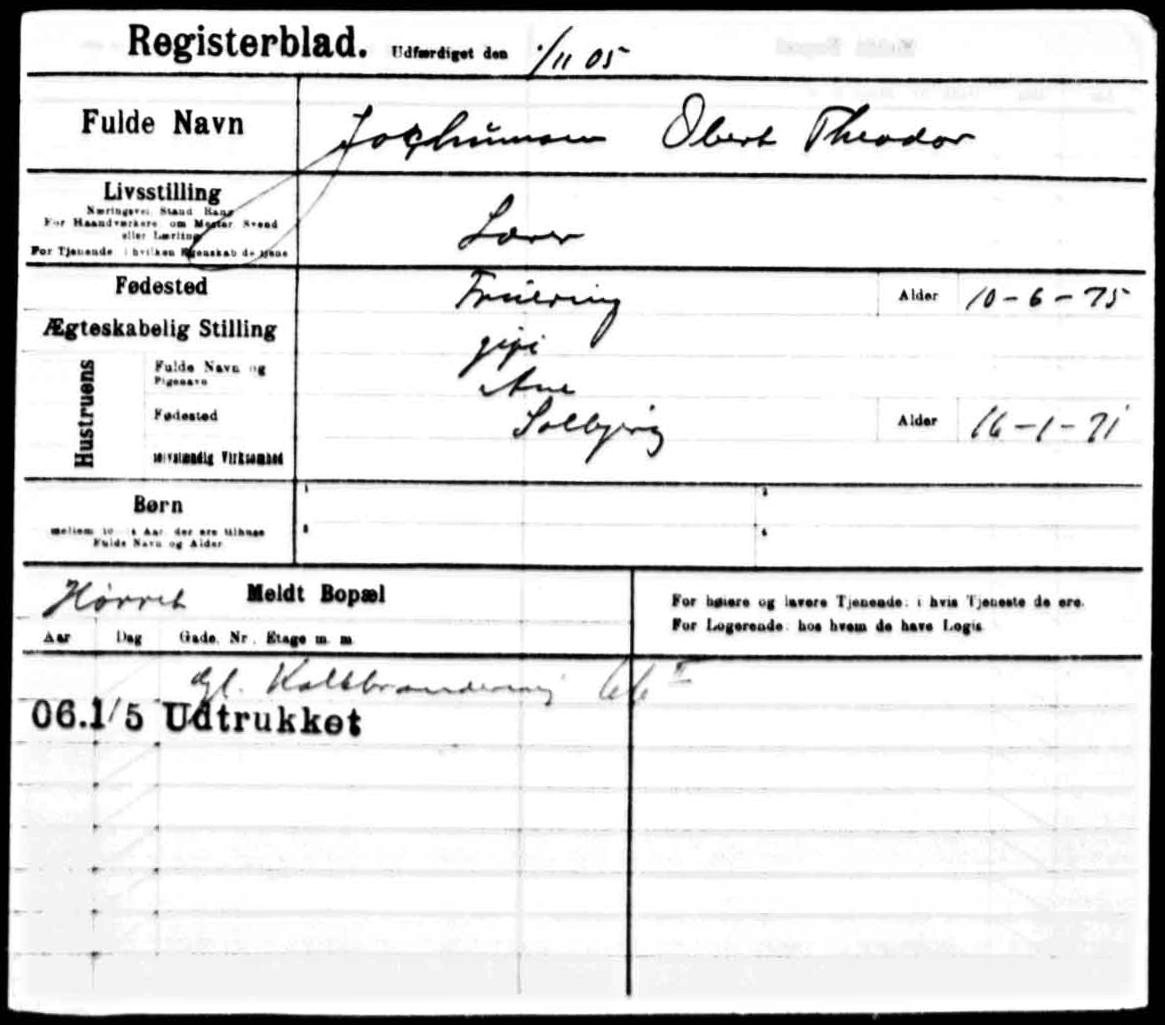 Registerblad. Udfærdiget den 1/11 05
Fulde Navn Jochumsen Obert Theodor
Livsstilling
Næringsvei, Stand, Rang
For Haandværkere, om Mester, Svend
eller Lærling
For Tjenende, i hvilken Egenskab de tjene
Lærer
Fødested Fruering Alder 10-6-75
Ægteskabelig Stilling gift
Hustruens
Fulde Navn og
Pigenavn
Ane
Fødested Solbjerg Alder 16-1-71
selvstændig Virksomhed
Børn
mellem 10-14 Aar, der ere tilhuse
Fulde Navn og Alder.
1 2
3 4
Hørret Meldt Bopæl
Aar Dag Gade, Nr., Etage m. m.
For høiere og lavere Tjenende: i hvis Tjeneste de ere.
For Logerende: hos hvem de have Logis.
Gl. Kalkbrænderivej 66 II
06.1/5 Udtrukket